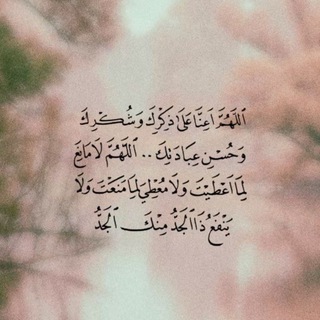 اَللَّهُمَّ اَعِنَّا عَلَىٰ ذِكْرِكَ وَشُكْرِكَ
وَحُسْنِ عِبَادَتِكَ .. اَللَّهُمَّ لَا مَانِعَ
لِمَا اَعْطَيْتَ وَلَا مُعْطِيَ لِمَا مَنَعْتَ وَلَا
يَنْفَعُ ذَا الْجَدِّ مِنْكَ الْجَدُّ